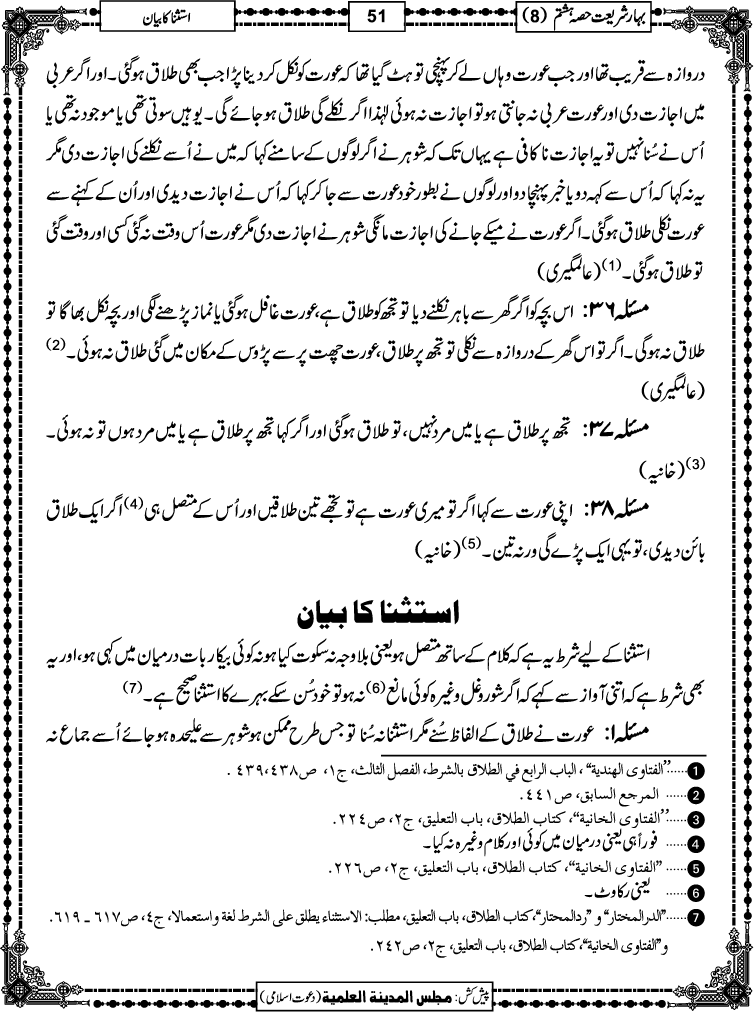 بہار شریعت حصہ ہشتم (8)
51
استثنا کا بیان
دروازہ سے قریب تھا اور جب عورت وہاں لے کر پہنچی تو ہٹ گیا تھا کہ عورت کو نکل کر دینا پڑا جب بھی طلاق ہوگئی۔ اور اگر عربی
میں اجازت دی اور عورت عربی نہ جانتی ہو تو اجازت نہ ہوئی لہٰذا اگر نکلے گی طلاق ہوجائے گی۔ یوہیں سوتی تھی یا موجود نہ تھی یا
اُس نے سُنا نہیں تو یہ اجازت ناکافی ہے یہاں تک کہ شوہر نے اگر لوگوں کے سامنے کہا کہ میں نے اُسے نکلنے کی اجازت دی مگر
یہ نہ کہا کہ اُس سے کہہ دو یا خبر پہنچا دو اور لوگوں نے بطور خود عورت سے جا کر کہا کہ اُس نے اجازت دیدی اور اُن کے کہنے سے
عورت نکلی طلاق ہوگئی۔ اگر عورت نے میکے جانے کی اجازت مانگی شوہر نے اجازت دی مگر عورت اُس وقت نہ گئی کسی اور وقت گئی
تو طلاق ہوگئی۔(1) (عالمگیری)
مسئلہ ۳۶: اس بچہ کو اگر گھر سے باہر نکلنے دیا تو تجھ کو طلاق ہے، عورت غافل ہوگئی یا نماز پڑھنے لگی اور بچہ نکل بھاگا تو
طلاق نہ ہوگی۔ اگر تو اس گھر کے دروازہ سے نکلی تو تجھ پر طلاق، عورت چھت پر سے پڑوس کے مکان میں گئی طلاق نہ ہوئی۔(2)
(عالمگیری)
مسئلہ ۳۷: تجھ پر طلاق ہے یا میں مرد نہیں، تو طلاق ہوگئی اور اگر کہا تجھ پر طلاق ہے یا میں مرد ہوں تو نہ ہوئی۔
(3) (خانیہ)
مسئلہ ۳۸: اپنی عورت سے کہا اگر تو میری عورت ہے تو تجھے تین طلاقیں اور اُس کے متصل ہی(4) اگر ایک طلاق
بائن دیدی، تو یہی ایک پڑے گی ورنہ تین۔(5) (خانیہ)
استثنا کا بیان
استثنا کے لیے شرط یہ ہے کہ کلام کے ساتھ متصل ہو یعنی بلا وجہ نہ سکوت کیا ہو نہ کوئی بیکار بات درمیان میں کہی ہو، اور یہ
بھی شرط ہے کہ اتنی آواز سے کہے کہ اگر شور و غل وغیرہ کوئی مانع(6) نہ ہو تو خود سُن سکے بہرے کا استثنا صحیح ہے۔(7)
مسئلہ ۱: عورت نے طلاق کے الفاظ سُنے مگر استثنا نہ سُنا تو جس طرح ممکن ہو شوہر سے علیحدہ ہوجائے اُسے جماع نہ
1 ......"الفتاوی الھندیة"، الباب الرابع في الطلاق بالشرط، الفصل الثالث، ج۱، ص۴۳۸،۴۳۹.
2 ...... المرجع السابق، ص۴۴۱.
3 ......"الفتاوی الخانیة"، کتاب الطلاق، باب التعلیق، ج۲، ص۲۲۴.
4 ...... فوراً ہی یعنی درمیان میں کوئی اور کلام وغیرہ نہ کیا۔
5 ......"الفتاوی الخانیة"، کتاب الطلاق، باب التعلیق، ج۲، ص۲۲۶.
6 ...... یعنی رکاوٹ۔
7 ......"الدرالمختار" و "ردالمحتار"، کتاب الطلاق، باب التعلیق، مطلب: الاستثناء یطلق علی الشرط لغة واستعمالا، ج۴، ص۶۱۷ ـ ۶۱۹.
و"الفتاوی الخانیة"، کتاب الطلاق، باب التعلیق، ج۲، ص۲۴۲.
پیش کش: مجلس المدینة العلمیة (دعوت اسلامی)